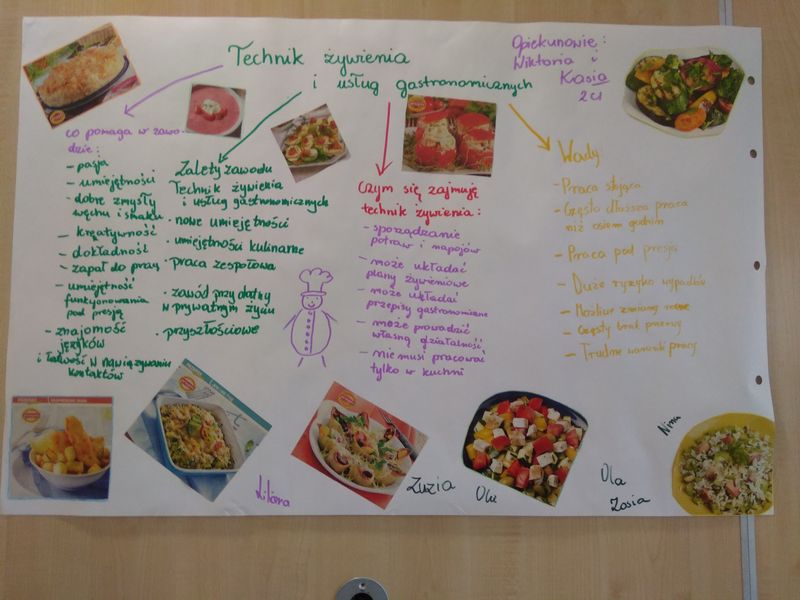 Technik żywienia
i usług gastronomicznych
Opiekunowie:
Wiktoria i
Kasia
2c1
co pomaga w zawo-
dzie:
- pasja
- umiejętności
- dobre zmysły
węchu i smaku
- kreatywność
- dokładność
- zapał do pracy
- umiejętność
funkcjonowania
pod presją
- znajomość
języków
i łatwość w nawiązywaniu
kontaktów
Zalety zawodu
Technik żywienia
i usług gastronomicznych
· nowe umiejętności
· umiejętności kulinarne
· praca zespołowa
· zawód przydatny
w prywatnym życiu
· przyszłościowe
Czym się zajmuje
technik żywienia:
- sporządzanie
potraw i napojów
- może układać
plany żywieniowe
- może układać
przepisy gastronomiczne
- może prowadzić
własną działalność
- nie musi pracować
tylko w kuchni
Wady
- Praca stojąca
- Często dłuższa praca
niż osiem godzin
- Praca pod presją
- Duże ryzyko wypadków
- Możliwe zmiany nocne
- Częsty brak przerwy
- Trudne warunki pracy
Liliana
Zuzia
Ola
Ola
Zosia
Nina